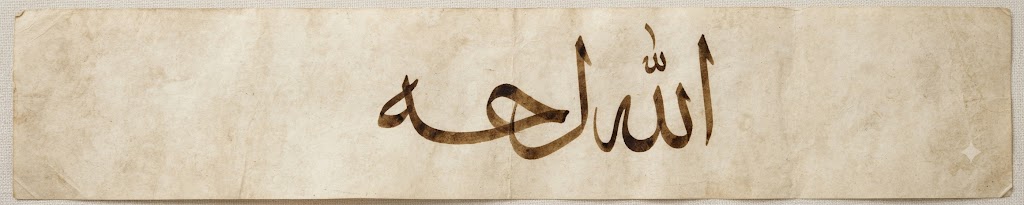 الله لحه